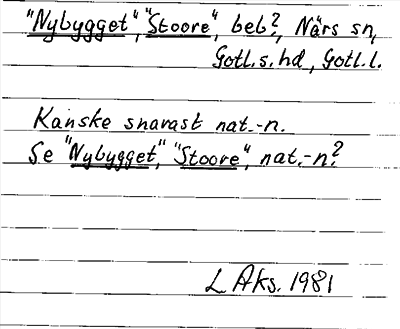 "Nybygget", "Stoore", beb?, Närs sn,
Gotl.s.hd, Gotl.l.
Kanske snarast nat.-n.
Se "Nybygget", "Stoore", nat.-n.?
L Aks. 1981